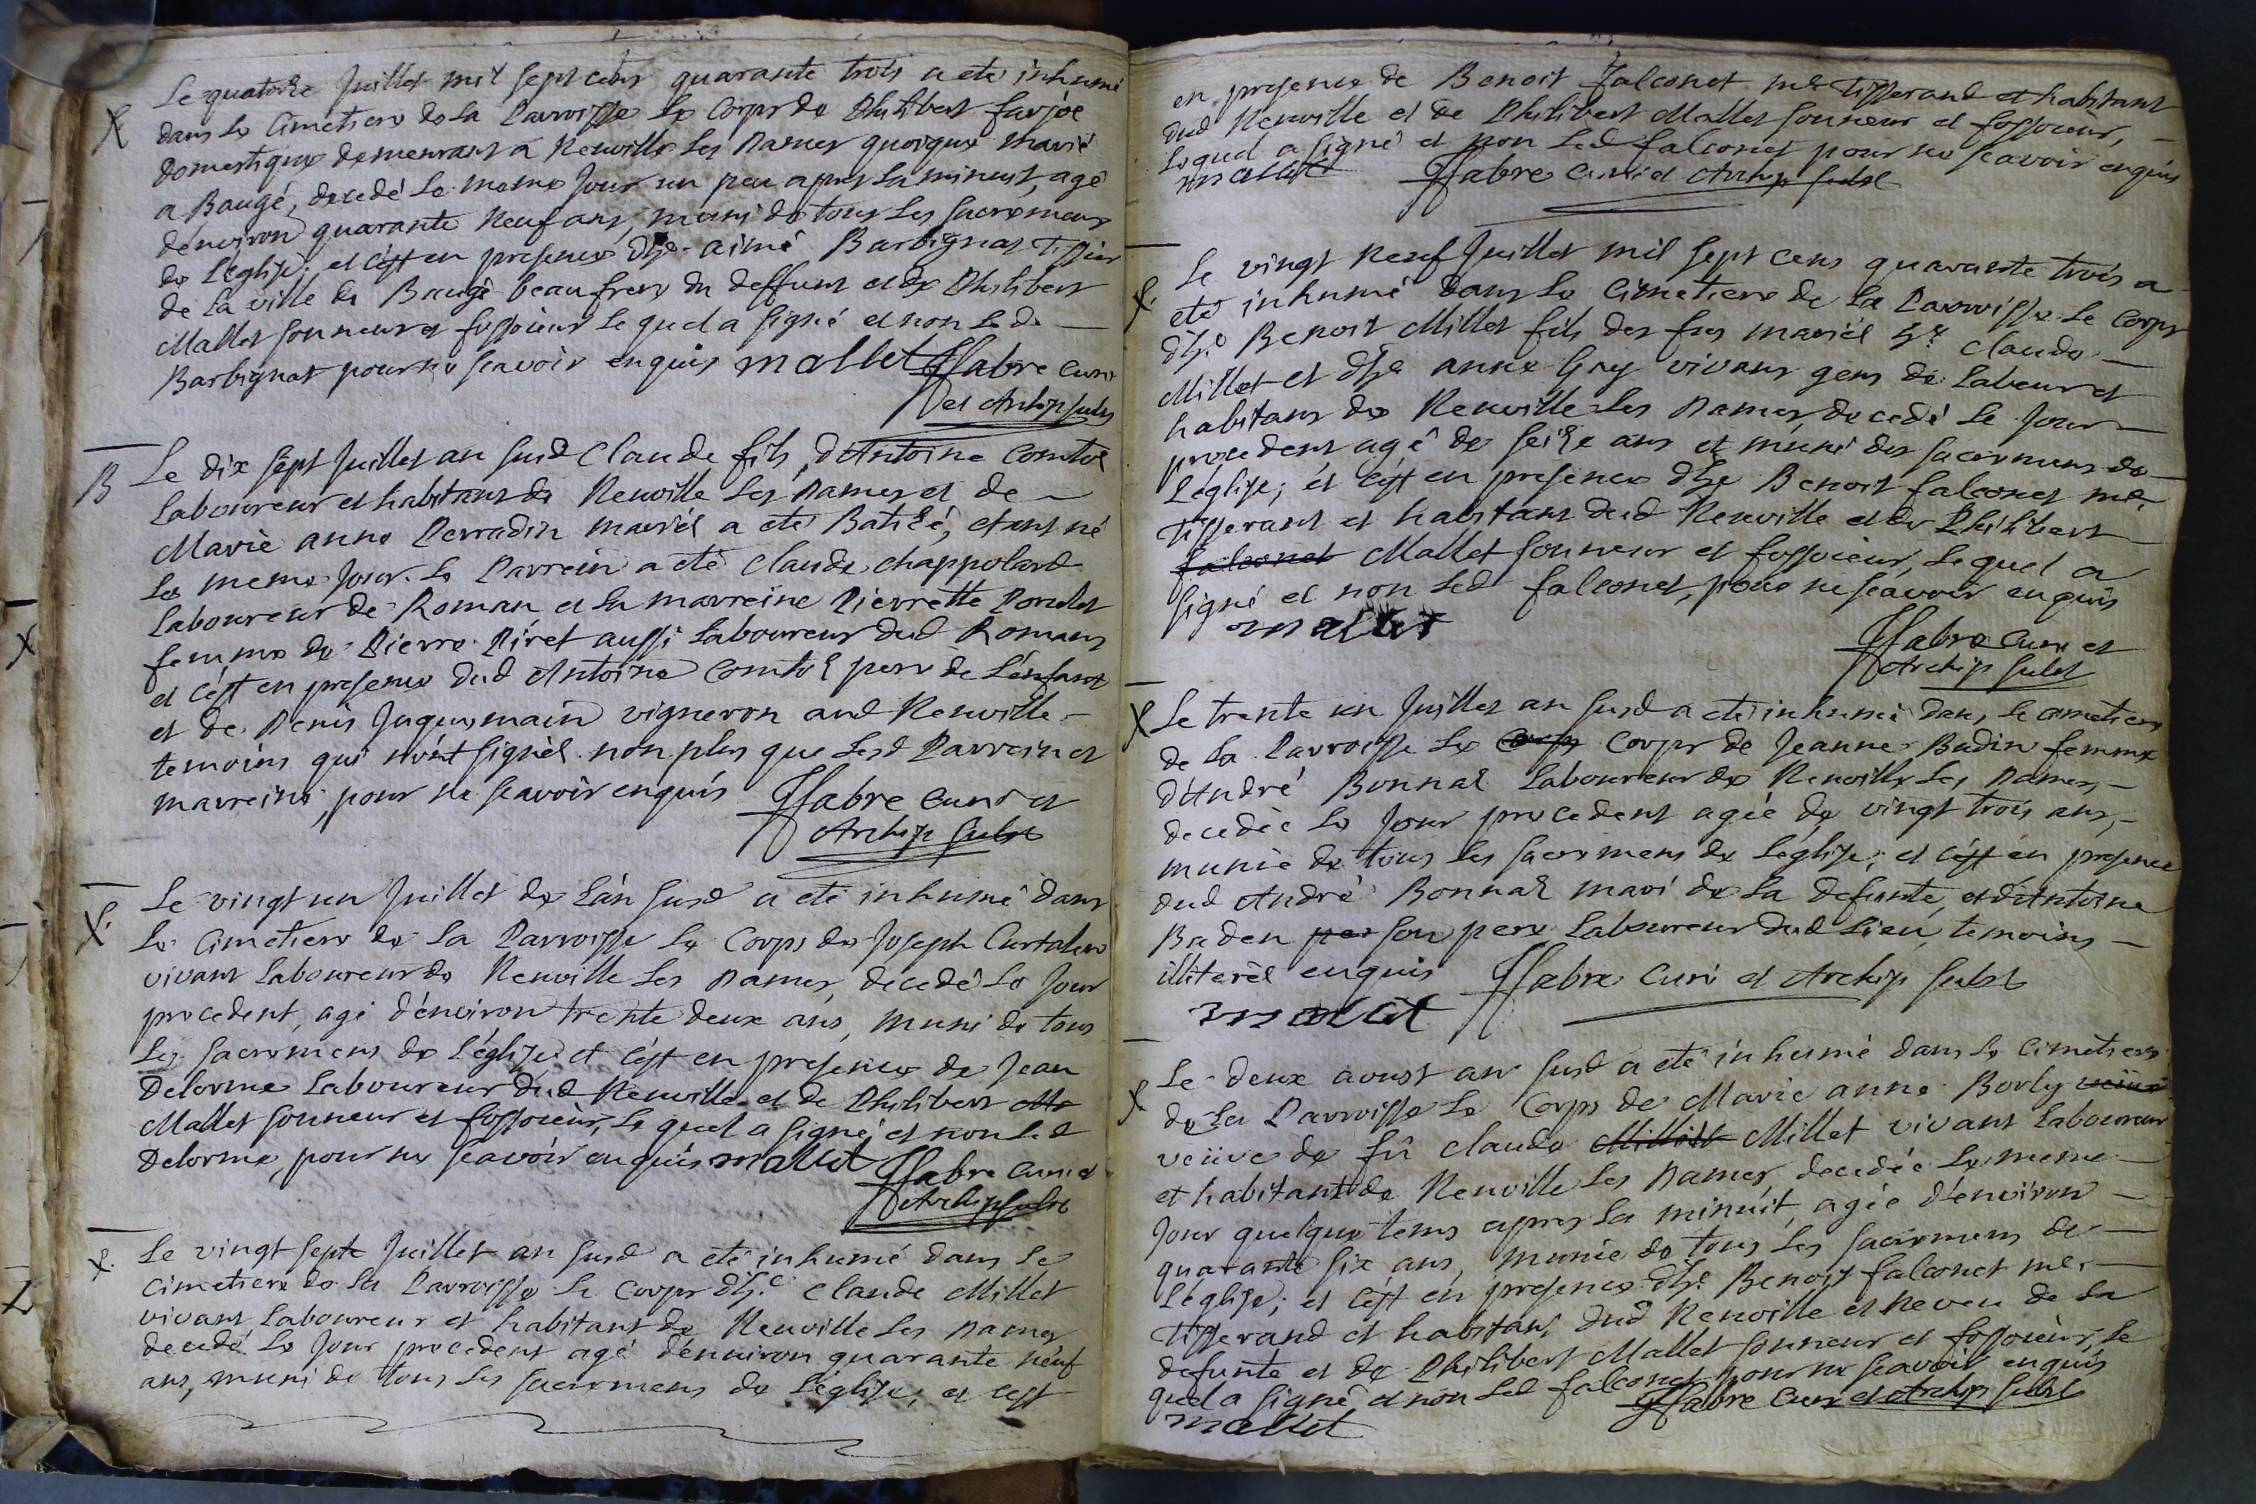 Le quatorze Juillet mil sept cens quarante trois a eté inhumé
dans le Cimetiere de la Parroisse le Corps de Philibert farjoe
domestique demeurant a Neuville les Dames quoique marié
a Baugé, decedé le meme Jour un peu apres la minuit, agé
d'environ quarante neuf ans, muni de tous les sacremens
de l'église; et c'est en presence d'hte aimé Barbignat Tissier
de la ville de Baugé beaufrere du deffunt et de Philibert
Mallet sonneur et fossoieur lequel a signé et non led.
Barbignat pour ne scavoir enquis mallet ffabre curé
et Archip subst
B Le dix sept Juillet an susd Claude fils d'Antoine Comtet
Laboureur et habitant de Neuville les Dames et de
Marie anne Perradin mariés a eté Batizé, etant né
le meme Jour. Le Parrein a eté Claude chappolard
Laboureur de Roman et la marreine Pierrette
femme de Pierre Piret aussi Laboureur dud Romans
et c'est en presence dud Antoine Comtet pere de l'enfant
et de Denis Juquesmain vigneron aud Neuville
temoins qui n'ont signés non plus que lesd Parrein et
marreine, pour ne scavoir enquis ffabre curé et
Archip subst
Le vingt un Juillet de l'an susd a eté inhumé dans
le Cimetiere de la Parroisse le Corps de Joseph Curtaleu
vivant Laboureur de Neuville les Dames, decedé le Jour
precedent, agé d'environ trente deux ans, muni de tous
les sacremens de l'église et c'est en presence de Jean
Delorme Laboureur dud Neuville et de Philibert Ma
Mallet sonneur et fossoieur, lequel a signé et non led
Delorme, pour ne scavoir enquis mallet ffabre curé et
Archip subst
Le vingt sept Juillet an susd a eté inhumé dans le
Cimetiere de la Parroisse le Corps d'h.e Claude Millet
vivant Laboureur et habitant de Neuville les Dames
decedé le Jour precedent agé d'environ quarante neuf
ans, muni de tous les sacremens de l'église, et c'est
en presence de Benoit falconet me Tisserand et habitant
dud Neuville et de Philibert Mallet sonneur et fossoieur,
lequel a signé et non led falconet pour ne scavoir enquis
mallet ffabre curé et Archip subst
Le vingt neuf Juillet mil sept cens quarante trois a
eté inhumé dans le Cimetiere de la Parroisse le Corps
d'h.e Benoit Millet fils des feus mariés h.e Claude
Millet et d'h.e anne Gay vivans gens de labeur et
habitans de Neuville les Dames, decedé le Jour
precedent agé de seize ans et muni des sacremens de
l'église; et c'est en presence d'h.e Benoit falconet me
Tisserant et habitant dud Neuville et de Philibert
falconet Mallet sonneur et fossoieur, lequel a
signé et non led falconet, pour ne scavoir enquis
mallet
ffabre curé et
Archip subst
Le trente un Juillet an susd a eté inhumé dans le cimetiere
de la Parroisse le Corps Corps de Jeanne Badin femme
d'André Bonnaz Laboureur de Neuville les Dames,
decedée le Jour precedent agée de vingt trois ans,
munie de tous les sacremens de l'église; et c'est en presence
dud André Bonnaz mari de la defunte, et d'Antoine
Baden per son pere Laboureur dud Lieu, temoins
illiterés enquis ffabre Curé et Archip subst
mallet
Le deux aoust an susd a eté inhumé dans le Cimetiere
de la Parroisse le Corps de Marie anne Borly veuve
veüve de fû Claude Millet Millet vivant Laboureur
et habitant de Neuville les Dames, decedée le meme
Jour quelque tems apres la minuit, agée d'environ
quarante six ans, munie de tous les sacremens de
l'église; et c'est en presence d'h.e Benoit falconet me
Tisserand et habitant dud Neuville et neveu de la
defunte et de Philibert Mallet sonneur et fossoieur, le
quel a signé et non led falconet pour ne scavoir enquis
mallet ffabre Curé et Archip subst